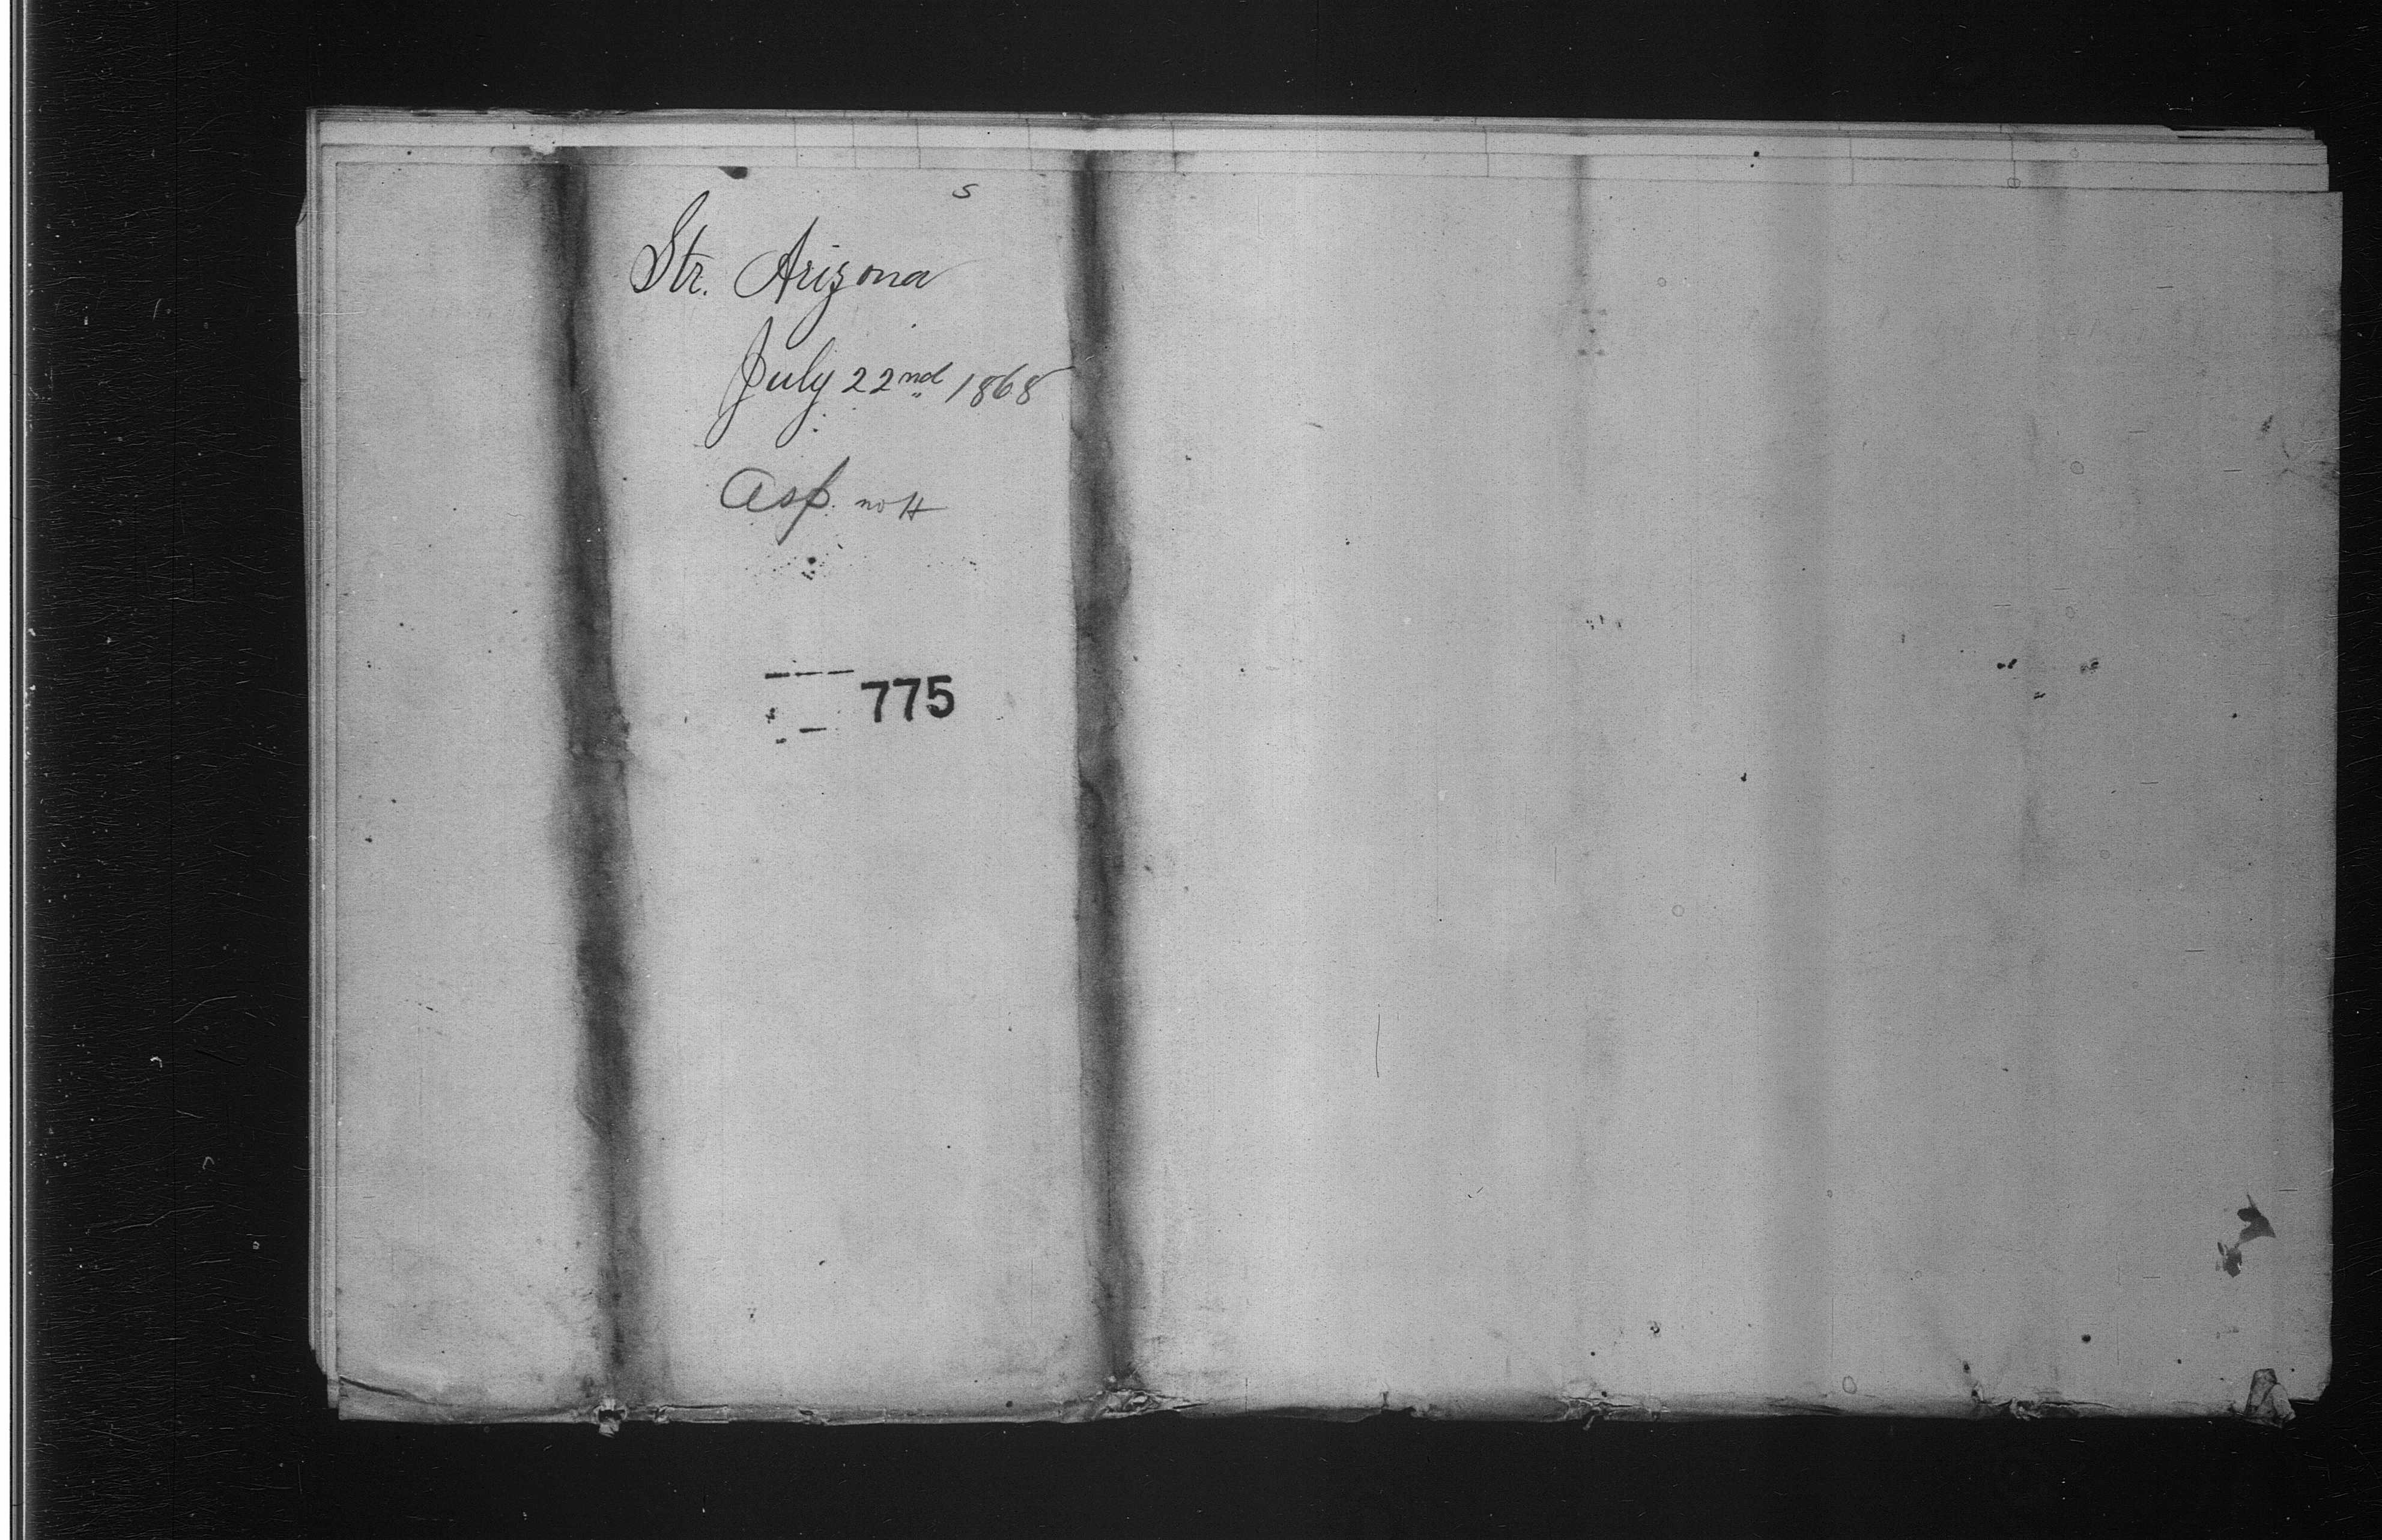 s
Str. Arizona
July 22nd 1868
Asp.
775